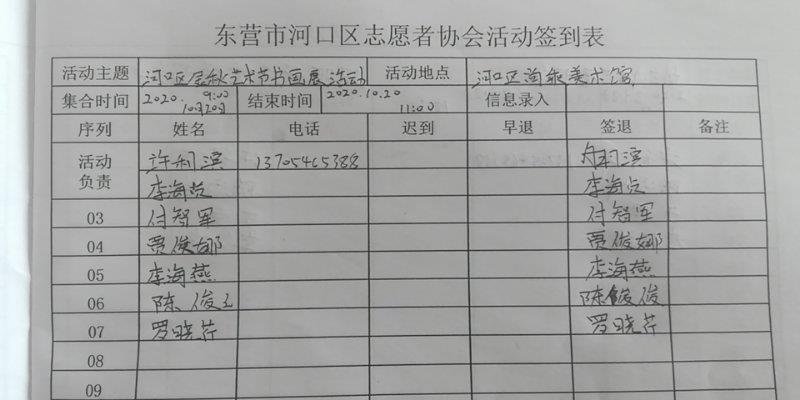 东营市河口区志愿者协会活动签到表
活动主题 河口区金秋艺术节书画展活动 活动地点 河口区 美术馆
集合时间 2020.10月20日 9:00 结束时间 2020.10.20 11:00 信息录入
序列 姓名 电话 迟到 早退 签退 备注
活动负责 许利滨 13705465388 利滨
李海 李海
03 付智军 付智军
04 贾俊娜 贾俊娜
05 李海燕 李海燕
06 陈俊 陈俊
07 罗晓芹 罗晓芹
08
09